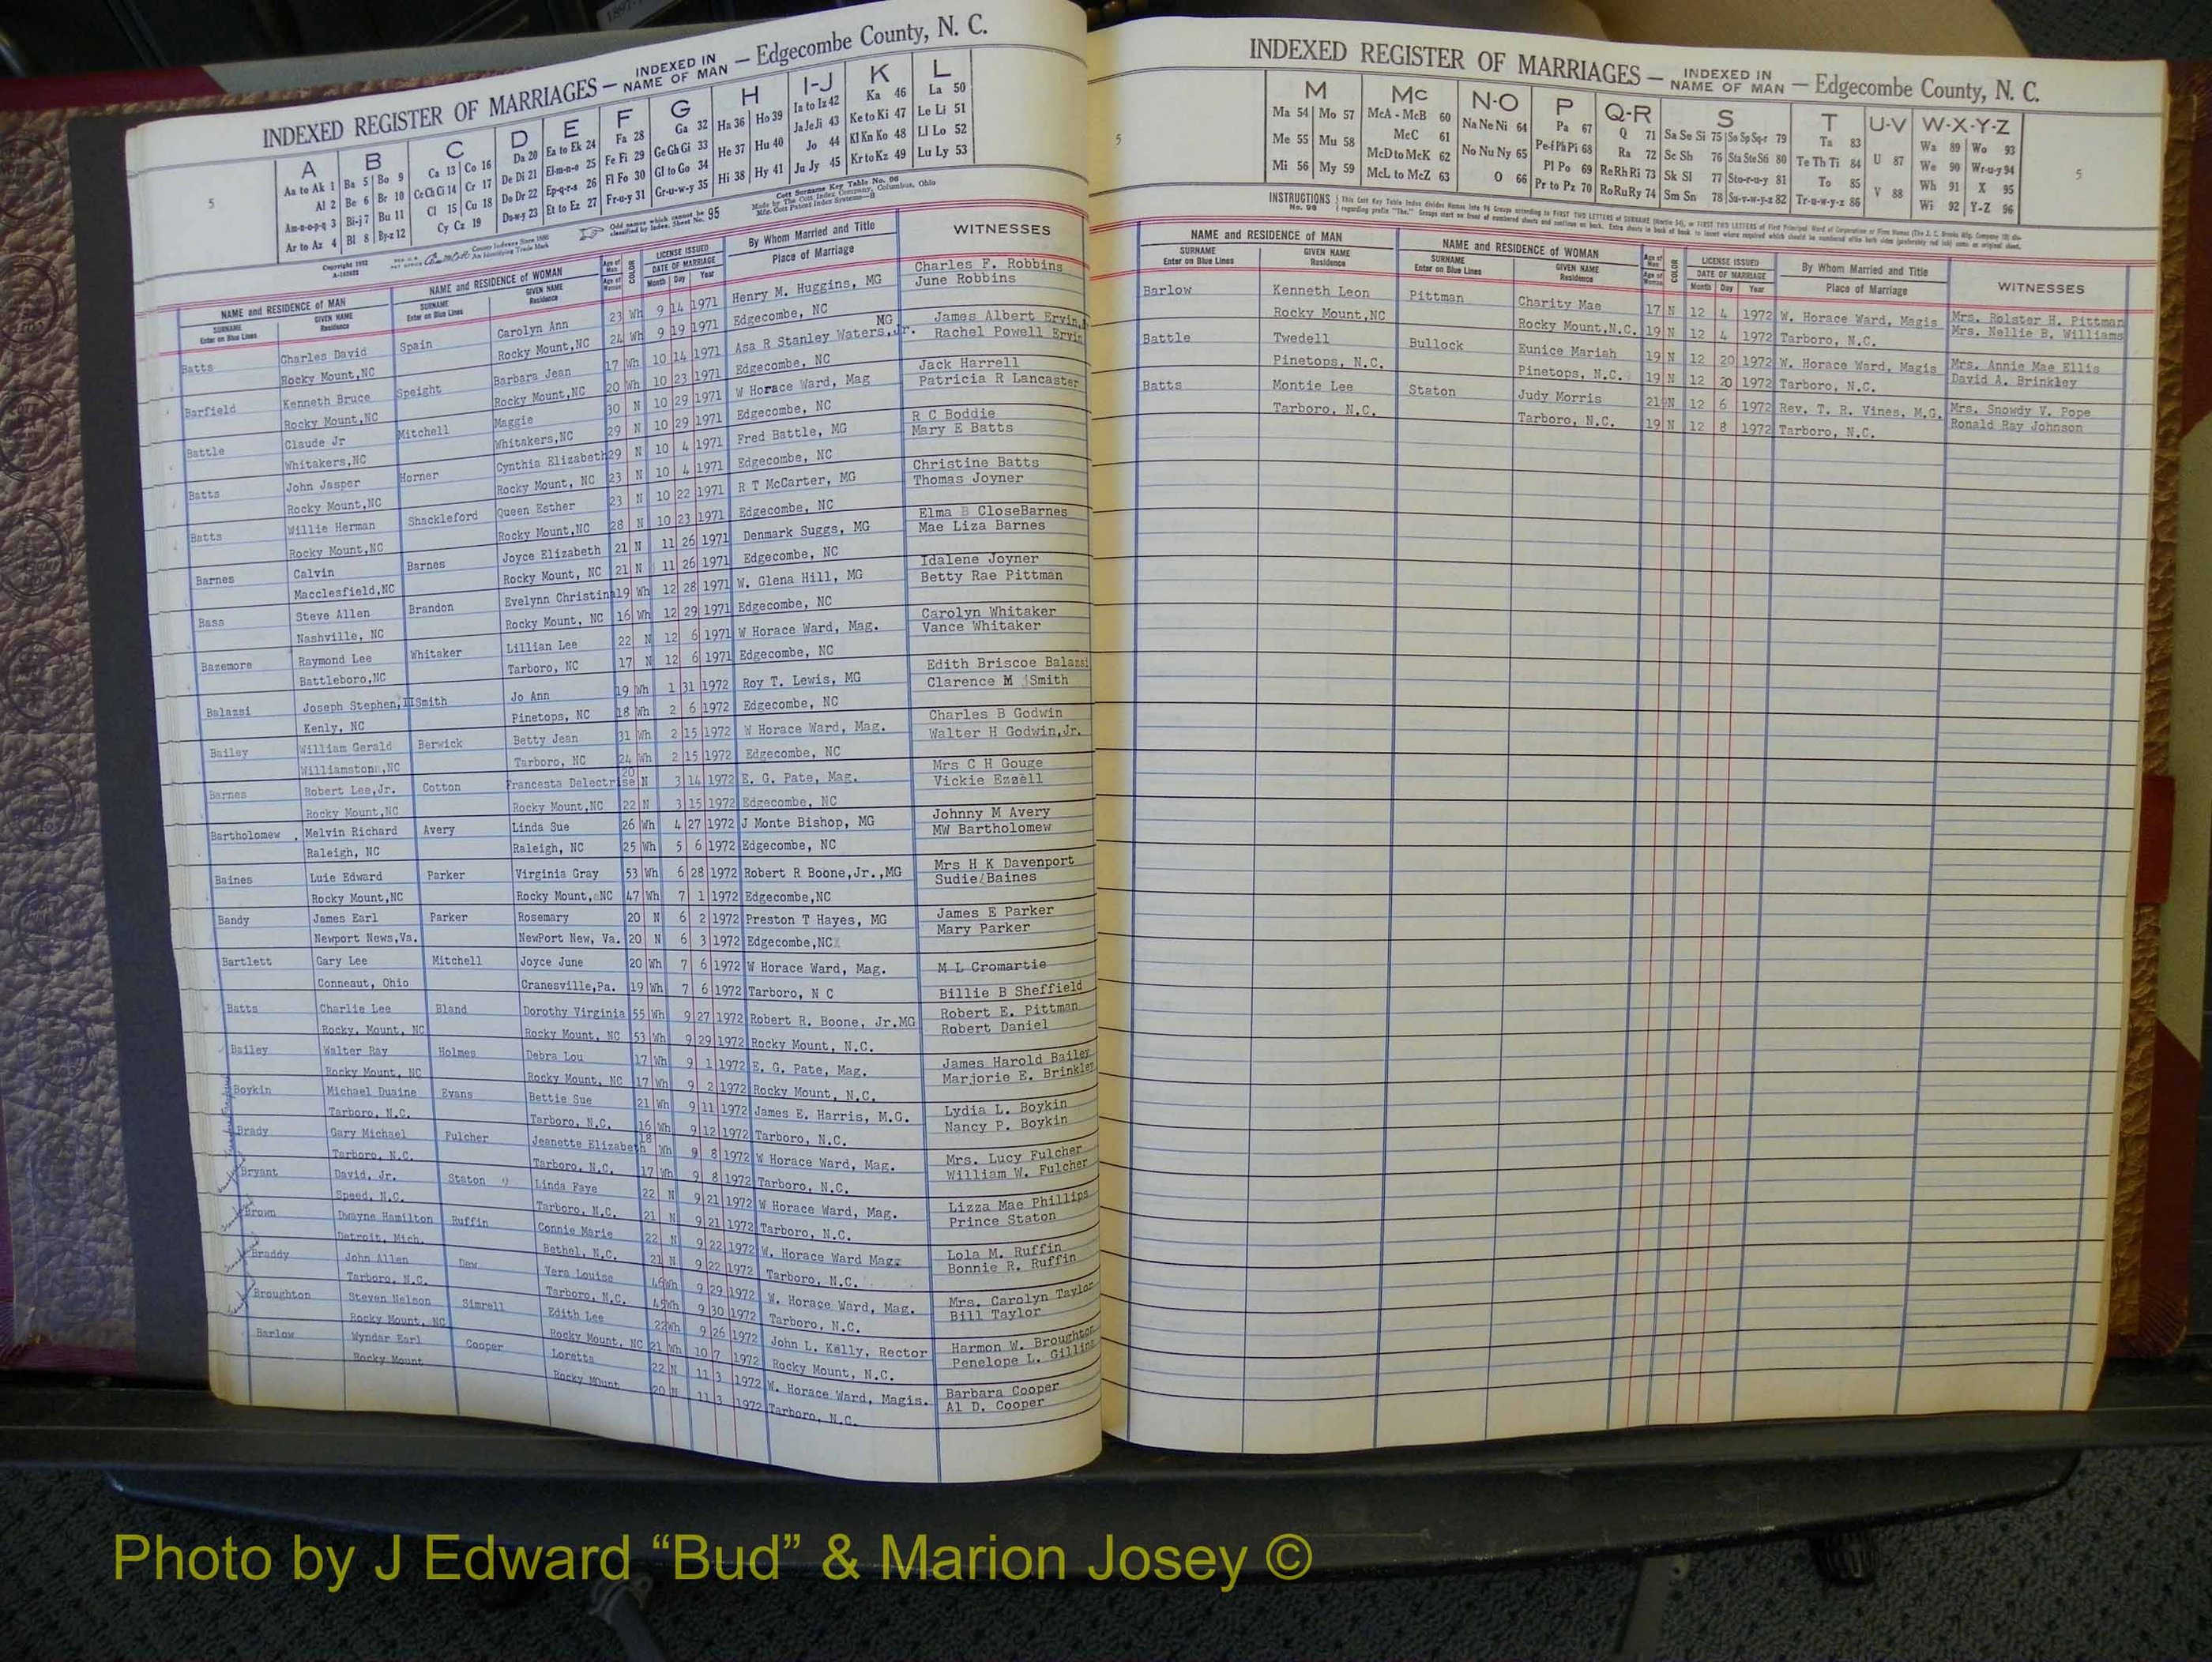 INDEXED REGISTER OF MARRIAGES — INDEXED IN NAME OF MAN — Edgecombe County, N. C.
A B C D E F G H I-J K L
Aa to Ak 1 Ba 5 Bo 9 Ca 13 Co 16 Da 20 Ea to Ek 24 Fa 28 Ga 32 Ha 36 Ho 39 Ia to Iz 42 Ka 46 La 50
Al 2 Be 6 Br 10 Ce Ch Ci 14 Cr 17 De Di 21 El-m-n-o 25 Fe Fi 29 Ge Gh Gi 33 He 37 Hu 40 Ja Je Ji 43 Ke to Ki 47 Le Li 51
Am-n-o-p-q 3 Bi-j 7 Bu 11 Cl 15 Cu 18 Do Dr 22 Ep-q-r-s 26 Fl Fo 30 Gl to Go 34 Hi 38 Hy 41 Jo 44 Kl Kn Ko 48 Ll Lo 52
Ar to Az 4 Bl 8 By-z 12 Cy Cz 19 Du-w-y 23 Et to Ez 27 Fr-u-y 31 Gr-u-w-y 35 Ju Jy 45 Kr to Kz 49 Lu Ly 53
5
Odd names which cannot be classified by Index. Sheet No. 95
Cott Surname Key Table No. 96
Made by The Cott Index Company, Columbus, Ohio
NAME and RESIDENCE of MAN NAME and RESIDENCE of WOMAN LICENSE ISSUED By Whom Married and Title WITNESSES
SURNAME Enter on Blue Lines GIVEN NAME Residence SURNAME Enter on Blue Lines GIVEN NAME Residence Age of Man Age of Woman COLOR DATE OF MARRIAGE Month Day Year Place of Marriage
Batts Charles David Spain Carolyn Ann 23 Wh 9 14 1971 Henry M. Huggins, MG Charles F. Robbins
Rocky Mount,NC Rocky Mount,NC 24 Wh 9 19 1971 Edgecombe, NC June Robbins
Barfield Kenneth Bruce Speight Barbara Jean 17 Wh 10 14 1971 Asa R Stanley Waters,Jr. MG James Albert Ervin
Rocky Mount,NC Rocky Mount,NC 20 Wh 10 23 1971 Edgecombe, NC Rachel Powell Ervin
Battle Claude Jr Mitchell Maggie 30 N 10 29 1971 W Horace Ward, Mag Jack Harrell
Whitakers,NC Whitakers,NC 29 N 10 29 1971 Edgecombe, NC Patricia R Lancaster
Batts John Jasper Horner Cynthia Elizabeth 29 N 10 4 1971 Fred Battle, MG R C Boddie
Rocky Mount,NC Rocky Mount, NC 23 N 10 4 1971 Edgecombe, NC Mary E Batts
Batts Willie Herman Shackleford Queen Esther 23 N 10 22 1971 R T McCarter, MG Christine Batts
Rocky Mount,NC Rocky Mount,NC 28 N 10 23 1971 Edgecombe, NC Thomas Joyner
Barnes Calvin Barnes Joyce Elizabeth 21 N 11 26 1971 Denmark Suggs, MG Elma B CloseBarnes
Macclesfield,NC Rocky Mount, NC 21 N 11 26 1971 Edgecombe, NC Mae Liza Barnes
Bass Steve Allen Brandon Evelynn Christin 19 Wh 12 28 1971 W. Glena Hill, MG Idalene Joyner
Nashville, NC Rocky Mount, NC 16 Wh 12 29 1971 Edgecombe, NC Betty Rae Pittman
Bazemore Raymond Lee Whitaker Lillian Lee 22 N 12 6 1971 W Horace Ward, Mag. Carolyn Whitaker
Battleboro,NC Tarboro, NC 17 N 12 6 1971 Edgecombe, NC Vance Whitaker
Balazsi Joseph Stephen,II Smith Jo Ann 19 Wh 1 31 1972 Roy T. Lewis, MG Edith Briscoe Balazsi
Kenly, NC Pinetops, NC 18 Wh 2 6 1972 Edgecombe, NC Clarence M Smith
Bailey William Gerald Berwick Betty Jean 31 Wh 2 15 1972 W Horace Ward, Mag. Charles B Godwin
Williamston,NC Tarboro, NC 24 Wh 2 15 1972 Edgecombe, NC Walter H Godwin,Jr.
Barnes Robert Lee,Jr. Cotton Francesta Delectrise 20 N 3 14 1972 E. G. Pate, Mag. Mrs C H Gouge
Rocky Mount,NC Rocky Mount,NC 22 N 3 15 1972 Edgecombe, NC Vickie Ezzell
Bartholomew Melvin Richard Avery Linda Sue 26 Wh 4 27 1972 J Monte Bishop, MG Johnny M Avery
Raleigh, NC Raleigh, NC 25 Wh 5 6 1972 Edgecombe, NC MW Bartholomew
Baines Luie Edward Parker Virginia Gray 53 Wh 6 28 1972 Robert R Boone,Jr.,MG Mrs H K Davenport
Rocky Mount,NC Rocky Mount, NC 47 Wh 7 1 1972 Edgecombe,NC Sudie Baines
Bandy James Earl Parker Rosemary 20 N 6 2 1972 Preston T Hayes, MG James E Parker
Newport News,Va. NewPort New, Va. 20 N 6 3 1972 Edgecombe,NC Mary Parker
Bartlett Gary Lee Mitchell Joyce June 20 Wh 7 6 1972 W Horace Ward, Mag. M L Cromartie
Conneaut, Ohio Cranesville,Pa. 19 Wh 7 6 1972 Tarboro, N C Billie B Sheffield
Batts Charlie Lee Bland Dorothy Virginia 55 Wh 9 27 1972 Robert R. Boone, Jr.MG Robert E. Pittman
Rocky. Mount, NC Rocky Mount, NC 53 Wh 9 29 1972 Rocky Mount, N.C. Robert Daniel
Bailey Walter Ray Holmes Debra Lou 17 Wh 9 1 1972 E. G. Pate, Mag. James Harold Bailey
Rocky Mount, NC Rocky Mount, NC 17 Wh 9 2 1972 Rocky Mount, N.C. Marjorie E. Brinkley
Boykin Michael Duaine Evans Bettie Sue 21 Wh 9 11 1972 James E. Harris, M.G. Lydia L. Boykin
Tarboro, N.C. Tarboro, N.C. 16 Wh 9 12 1972 Tarboro, N.C. Nancy P. Boykin
Brady Gary Michael Fulcher Jeanette Elizabeth 18 Wh 9 8 1972 W Horace Ward, Mag. Mrs. Lucy Fulcher
Tarboro, N.C. Tarboro, N.C. 17 Wh 9 8 1972 Tarboro, N.C. William W. Fulcher
Bryant David, Jr. Staton Linda Faye 22 N 9 21 1972 W Horace Ward, Mag. Lizza Mae Phillips
Speed, N.C. Tarboro, N.C. 21 N 9 21 1972 Tarboro, N.C. Prince Staton
Brown Dwayne Hamilton Ruffin Connie Marie 22 N 9 22 1972 W. Horace Ward Mag. Lola M. Ruffin
Detroit, Mich. Bethel, N.C. 21 N 9 22 1972 Tarboro, N.C. Bonnie R. Ruffin
Braddy John Allen Dew Vera Louise 46 Wh 9 29 1972 W. Horace Ward, Mag. Mrs. Carolyn Taylor
Tarboro, N.C. Tarboro, N.C. Wh 9 30 1972 Tarboro, N.C. Bill Taylor
Broughton Steven Nelson Simrell Edith Lee 22 Wh 9 26 1972 John L. Kelly, Rector Harmon W. Broughton
Rocky Mount, NC Rocky Mount, NC 21 Wh 10 7 1972 Rocky Mount, N.C. Penelope L.
Barlow Wyndar Earl Cooper Loretta 22 N 11 3 1972 W. Horace Ward, Magis. Barbara Cooper
Rocky Mount Rocky MOunt 20 N 11 3 1972 Tarboro, N.C. Al D. Cooper
INDEXED REGISTER OF MARRIAGES — INDEXED IN NAME OF MAN — Edgecombe County, N. C.
M Mc N-O P Q-R S T U-V W-X-Y-Z
Ma 54 Mo 57 McA - McB 60 Na Ne Ni 64 Pa 67 Q 71 Sa Se Si 75 So Sp Sq-r 79 Ta 83 U 87 Wa 89 Wo 93
Me 55 Mu 58 McC 61 No Nu Ny 65 Pe-f Ph Pi 68 Ra 72 Sc Sh 76 Sta Ste Sti 80 Te Th Ti 84 V 88 We 90 Wr-u-y 94
Mi 56 My 59 McD to McK 62 O 66 Pl Po 69 Re Rh Ri 73 Sk Sl 77 Sto-r-u-y 81 To 85 Wh 91 X 95
McL to McZ 63 Pr to Pz 70 Ro Ru Ry 74 Sm Sn 78 Su-v-w-y-z 82 Tr-u-w-y-z 86 Wi 92 Y-Z 96
5 5
INSTRUCTIONS
NAME and RESIDENCE of MAN NAME and RESIDENCE of WOMAN LICENSE ISSUED By Whom Married and Title WITNESSES
SURNAME Enter on Blue Lines GIVEN NAME Residence SURNAME Enter on Blue Lines GIVEN NAME Residence Age of Man Age of Woman COLOR DATE OF MARRIAGE Month Day Year Place of Marriage
Barlow Kenneth Leon Pittman Charity Mae 17 N 12 4 1972 W. Horace Ward, Magis Mrs. Rolster H. Pittman
Rocky Mount,NC Rocky Mount,N.C. 19 N 12 4 1972 Tarboro, N.C. Mrs. Nellie B. Williams
Battle Twedell Bullock Eunice Mariah 19 N 12 20 1972 W. Horace Ward, Magis Mrs. Annie Mae Ellis
Pinetops, N.C. Pinetops, N.C. 19 N 12 20 1972 Tarboro, N.C. David A. Brinkley
Batts Montie Lee Staton Judy Morris 21 N 12 6 1972 Rev. T. R. Vines, M.G. Mrs. Snowdy V. Pope
Tarboro, N.C. Tarboro, N.C. 19 N 12 8 1972 Tarboro, N.C. Ronald Ray Johnson
Photo by J Edward “Bud” & Marion Josey ©